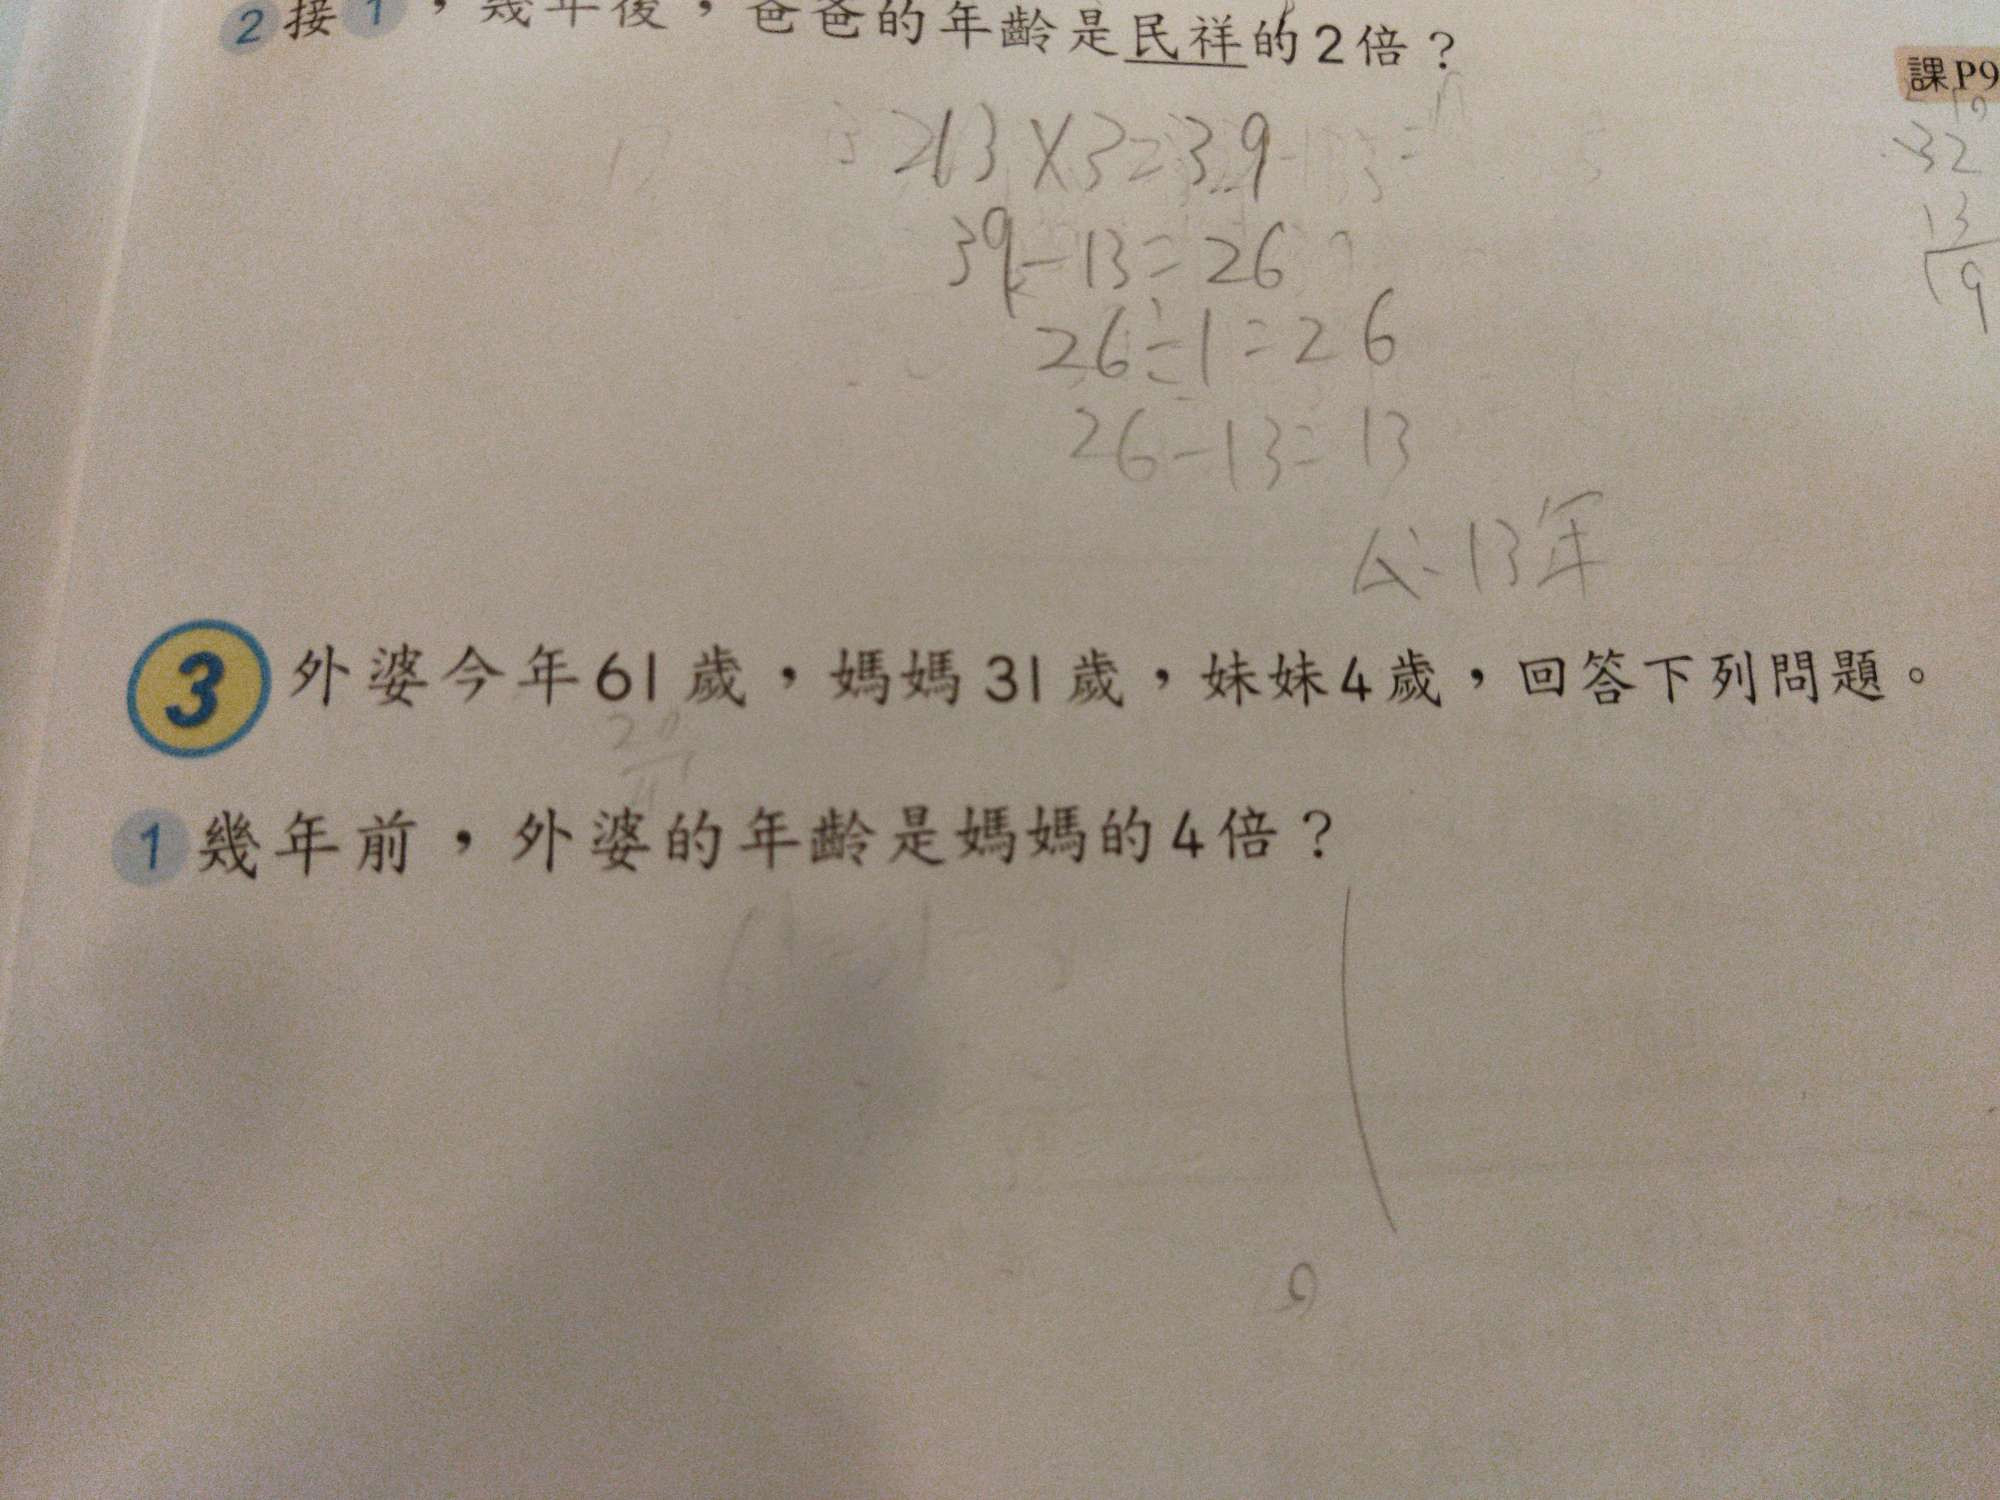 2 接1，幾年後，爸爸的年齡是民祥的2倍？
課P9
13×3=39
32
39-13=26
13
19
26÷1=26
26-13=13
A:13年
3 外婆今年61歲，媽媽31歲，妹妹4歲，回答下列問題。
1 幾年前，外婆的年齡是媽媽的4倍？